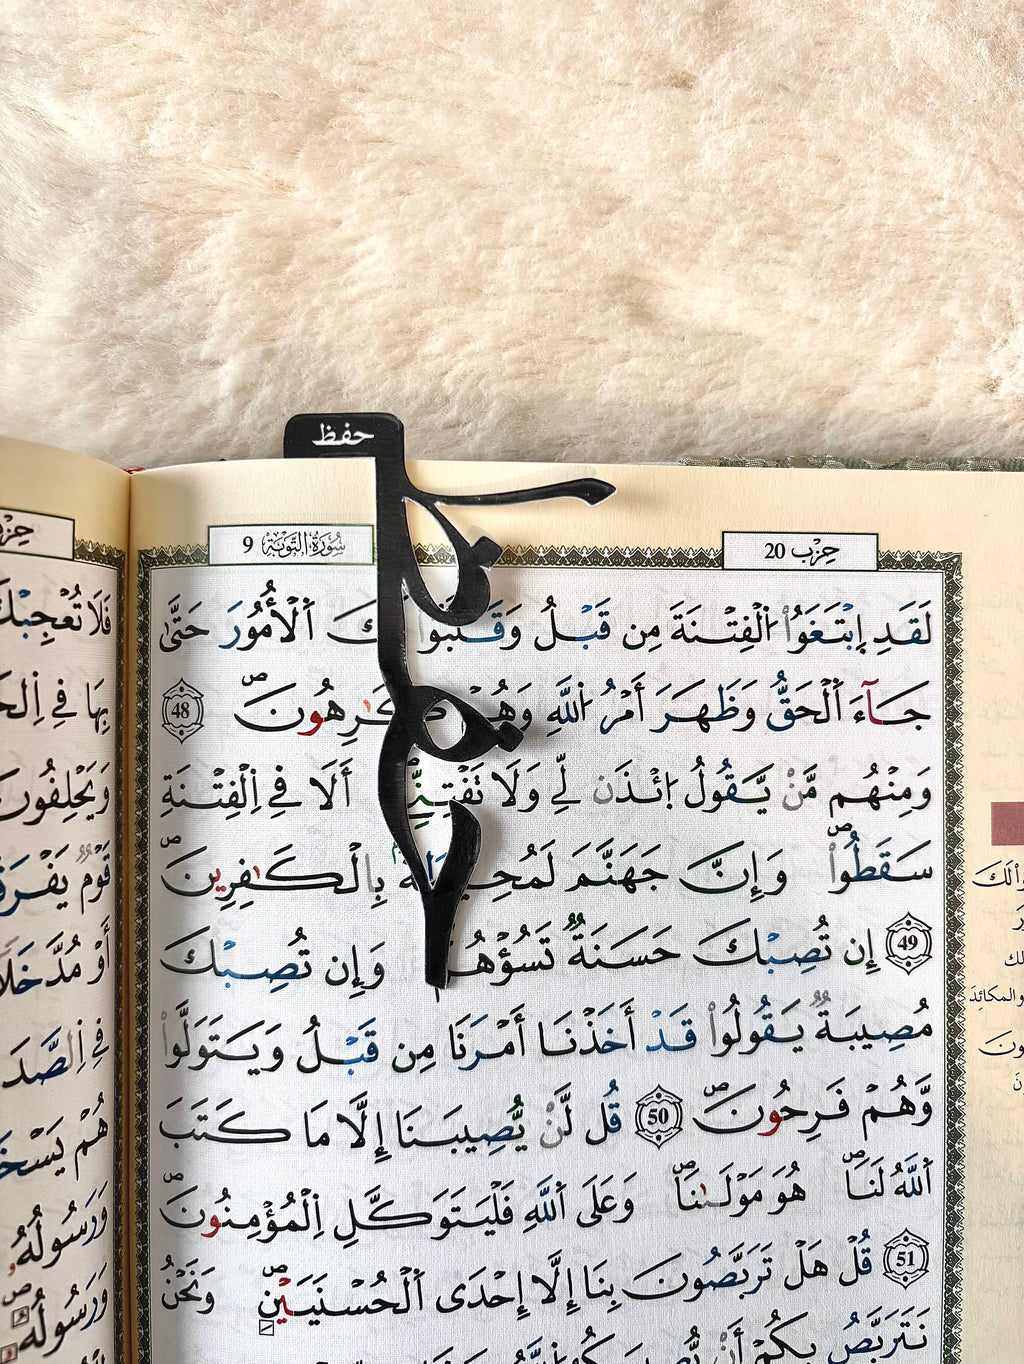 حفظ
سُورَةُ التَّوْبَةِ 9
حِزْب 20
لَقَدِ اِبْتَغَوُاْ اُلْفِتْنَةَ مِن قَبْلُ وَقَلَّبُواْ لَكَ اَلْأُمُورَ حَتَّىٰ
جَآءَ اَلْحَقُّ وَظَهَرَ أَمْرُ اُللَّهِ وَهُمْ كَٰرِهُونَۖ 48
وَمِنْهُم مَّنْ يَّقُولُ اُئْذَن لِّے وَلَا تَفْتِنِّےۖ أَلَا فِے اِلْفِتْنَةِ
سَقَطُواْۖ وَإِنَّ جَهَنَّمَ لَمُحِيطَةُۢ بِالْكَٰفِرِينَۖ
49 إِن تُصِبْكَ حَسَنَةٌ تَسُؤْهُمْ وَإِن تُصِبْكَ
مُصِيبَةٌ يَقُولُواْ قَدْ أَخَذْنَا أَمْرَنَا مِن قَبْلُ وَيَتَوَلَّواْ
وَّهُمْ فَرِحُونَۖ 50 قُل لَّنْ يُّصِيبَنَا إِلَّا مَا كَتَبَ
اَللَّهُ لَنَاۖ هُوَ مَوْلَىٰنَاۖ وَعَلَى اَللَّهِ فَلْيَتَوَكَّلِ اِلْمُؤْمِنُونَۖ
51 قُلْ هَلْ تَرَبَّصُونَ بِنَا إِلَّا إِحْدَى اَلْحُسْنَيَيْنِۖ وَنَحْنُ
نَتَرَبَّصُ بِكُمْ أَنْ يُّصِيبَكُمُ اُللَّهُ
فَلَا تُعْجِبْكَ
بِهَا فِے اِلْحَ
وَيَحْلِفُونَ
قَوْمٌ يَفْرَقُ
أَوْ مُدَّخَلًا
فِے اِلصَّدَ
هُمْ يَسْخَ
وَرَسُولُهُ
وَرَسُولُهُ